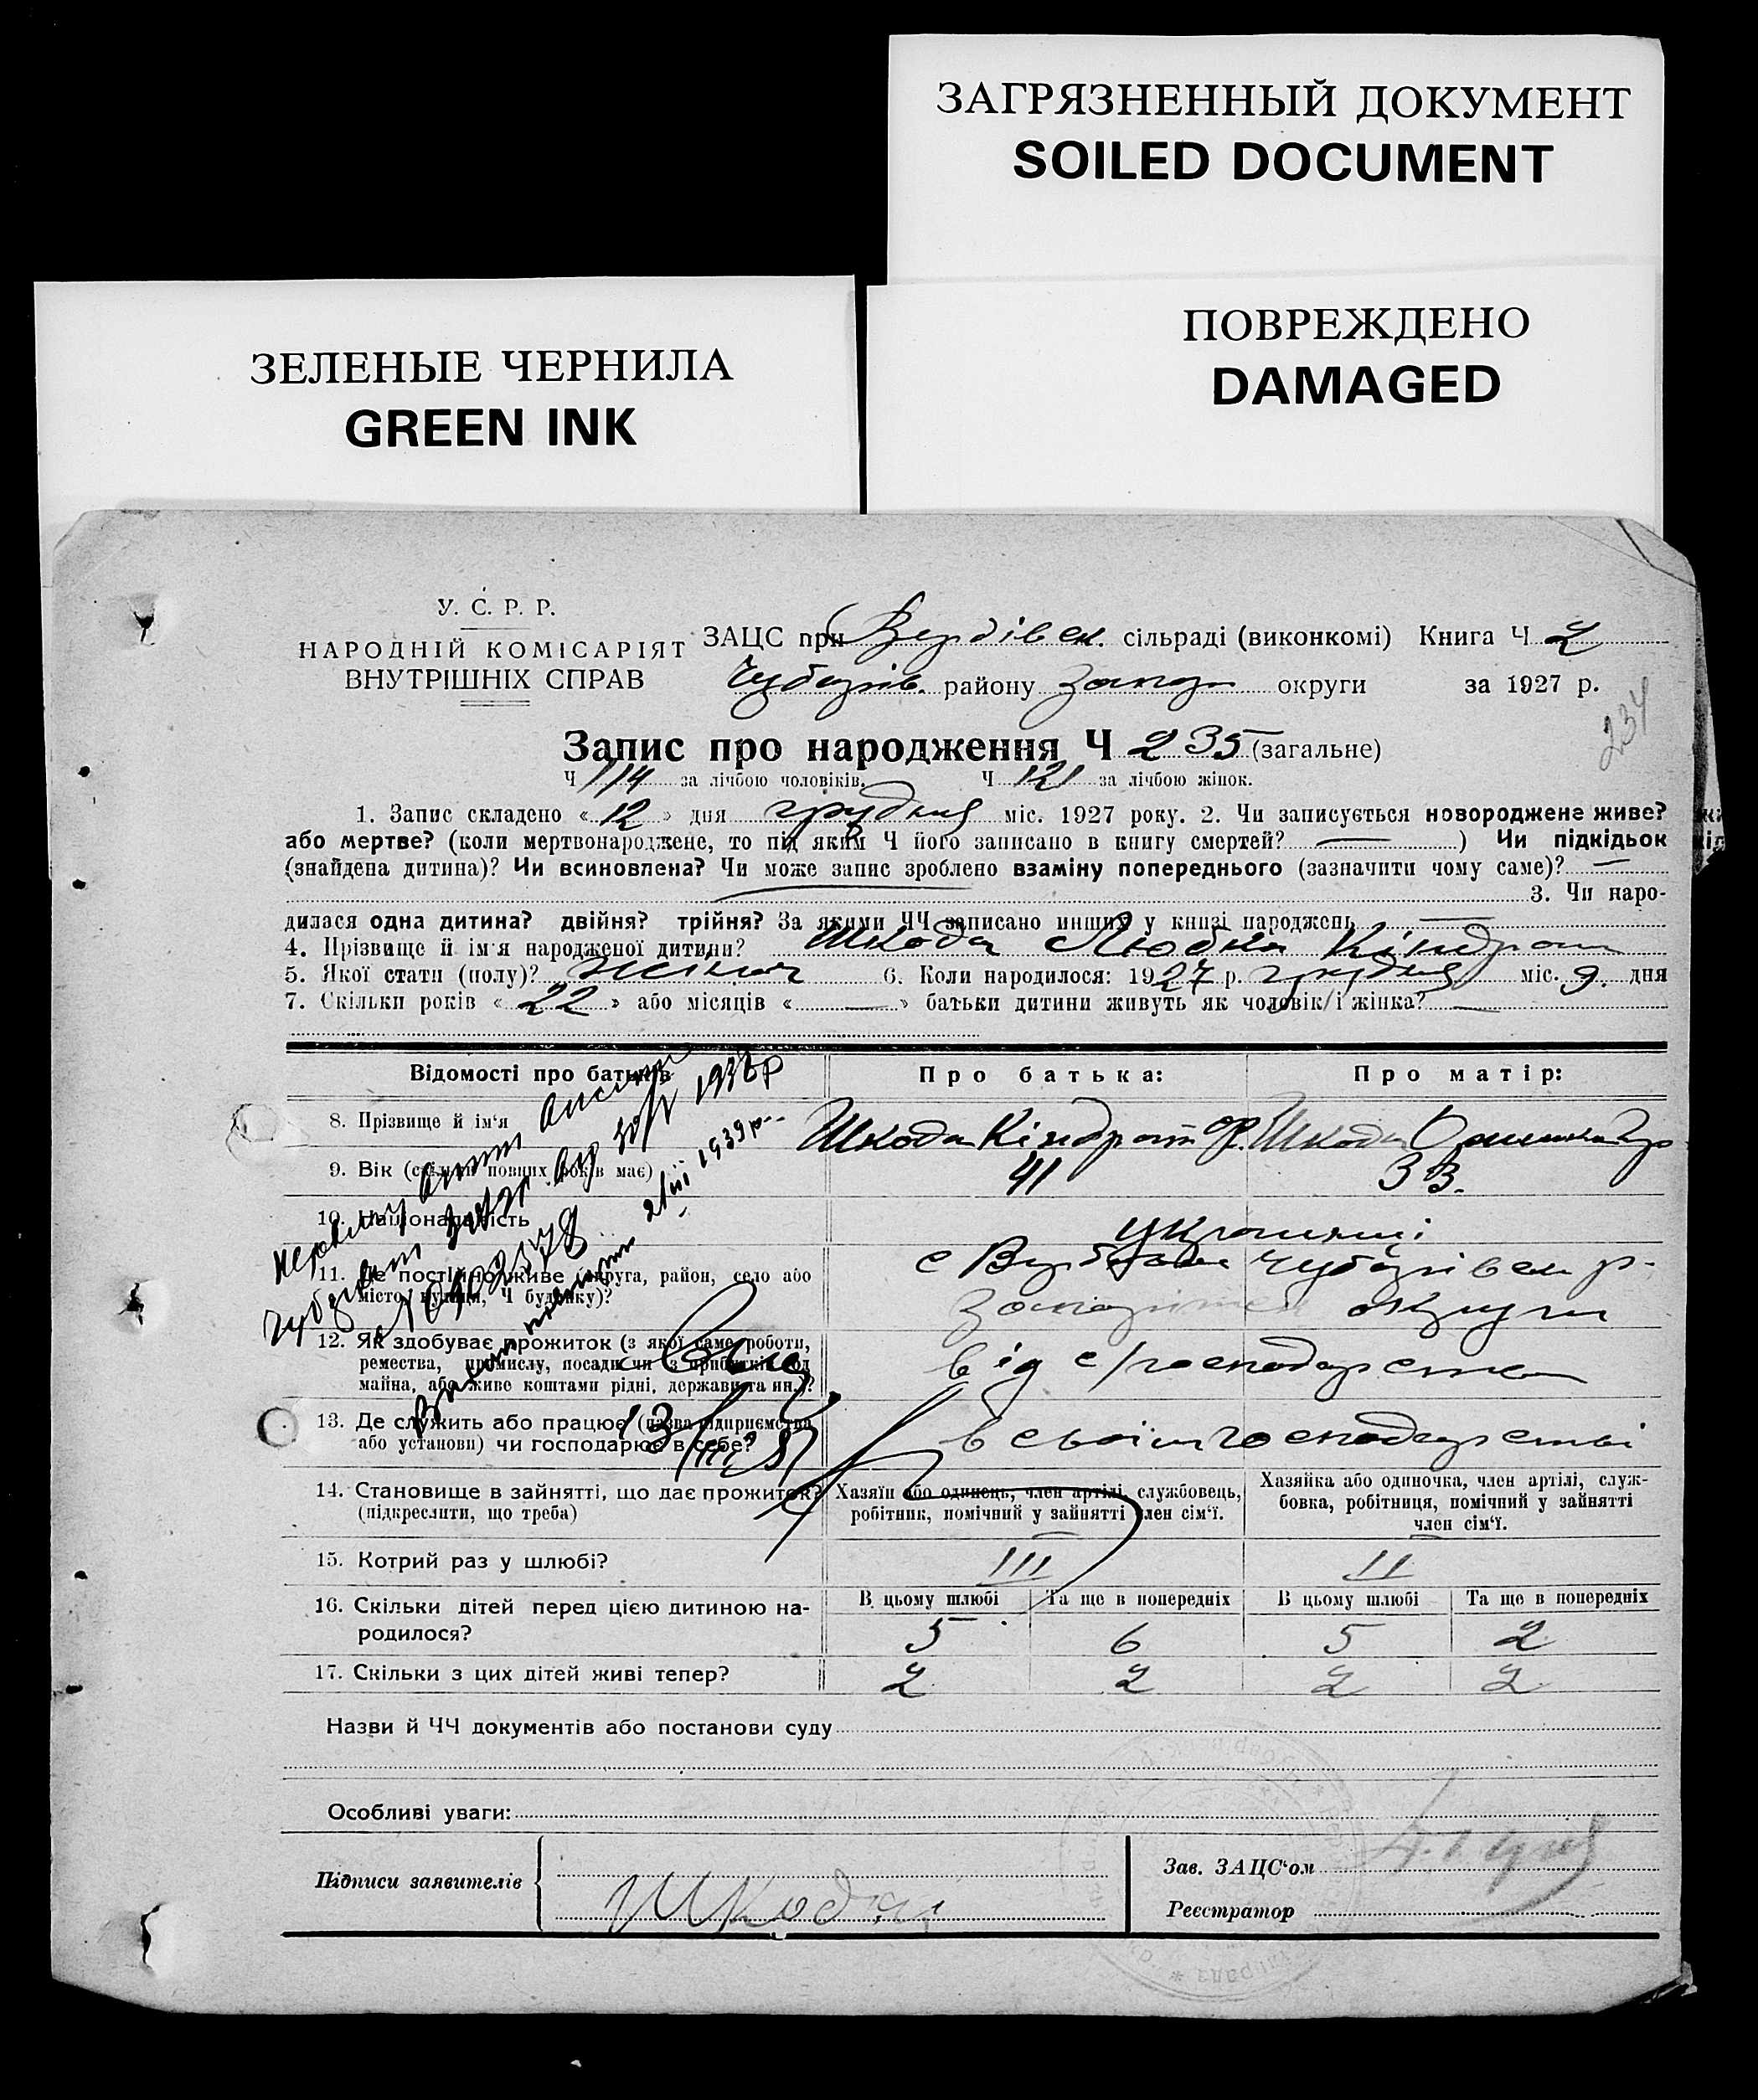 ЗАГРЯЗНЕННЫЙ ДОКУМЕНТ
SOILED DOCUMENT
ПОВРЕЖДЕНО
DAMAGED
ЗЕЛЕНЫЕ ЧЕРНИЛА
GREEN INK
У. С. Р. Р.
НАРОДНІЙ КОМІСАРІЯТ
ВНУТРІШНІХ СПРАВ
ЗАЦС при сільраді (виконкомі) Книга Ч 2
Чубарів. району Запор округи за 1927 р.
234
Запис про народження Ч 235 (загальне)
Ч 114 за лічбою чоловіків. Ч 121 за лічбою жінок.
1. Запис складено « 12 » дня грудня міс. 1927 року. 2. Чи записується новороджене живе?
або мертве? (коли мертвонароджене, то під яким Ч його записано в книгу смертей? — ) Чи підкідьок
(знайдена дитина)? Чи всиновлена? Чи може запис зроблено взаміну попереднього (зазначити чому саме)? —
3. Чи наро-
дилася одна дитина? двійня? трійня? За якими ЧЧ записано инших у книзі народжень —
4. Прізвище й ім'я народженої дитини? Шкода Любка Кіндрат
5. Якої стати (полу)? жіноч 6. Коли народилося: 1927 р. грудня міс. 9. дня
7. Скільки років « 22 » або місяців « — » батьки дитини живуть як чоловік і жінка? —
Відомості про батьків
Про батька:
Про матір:
8. Прізвище й ім'я
Шкода Кіндрат Ф.
Шкода
9. Вік (скільки повних років має)
41
33.
10. Національність
українці
11. Де постійно живе (округа, район, село або
місто, вулиця, Ч будинку)?
с Чубарівськ р.
округи
12. Як здобуває прожиток (з якої саме роботи,
ремества, промислу, посади чи з прибутків од
майна, або живе коштами рідні, держави та ин.)?
від с/господарства
13. Де служить або працює (назва підприємства
або установи) чи господарює в себе?
в своім господарстві
14. Становище в зайнятті, що дає прожиток?
(підкреслити, що треба)
Хазяїн або одинець, член артілі, службовець,
робітник, помічний у зайнятті член сім'ї.
Хазяйка або одиночка, член артілі, служ-
бовка, робітниця, помічний у зайнятті
член сім'ї.
15. Котрий раз у шлюбі?
III
II
16. Скільки дітей перед цією дитиною на-
родилося?
В цьому шлюбі
Та ще в попередніх
В цьому шлюбі
Та ще в попередніх
5 6 5 2
17. Скільки з цих дітей живі тепер?
2 2 2 2
21/III 1939 р.
Назви й ЧЧ документів або постанови суду
Особливі уваги:
Підписи заявителів
Шкода
Зав. ЗАЦС'ом
Реєстратор